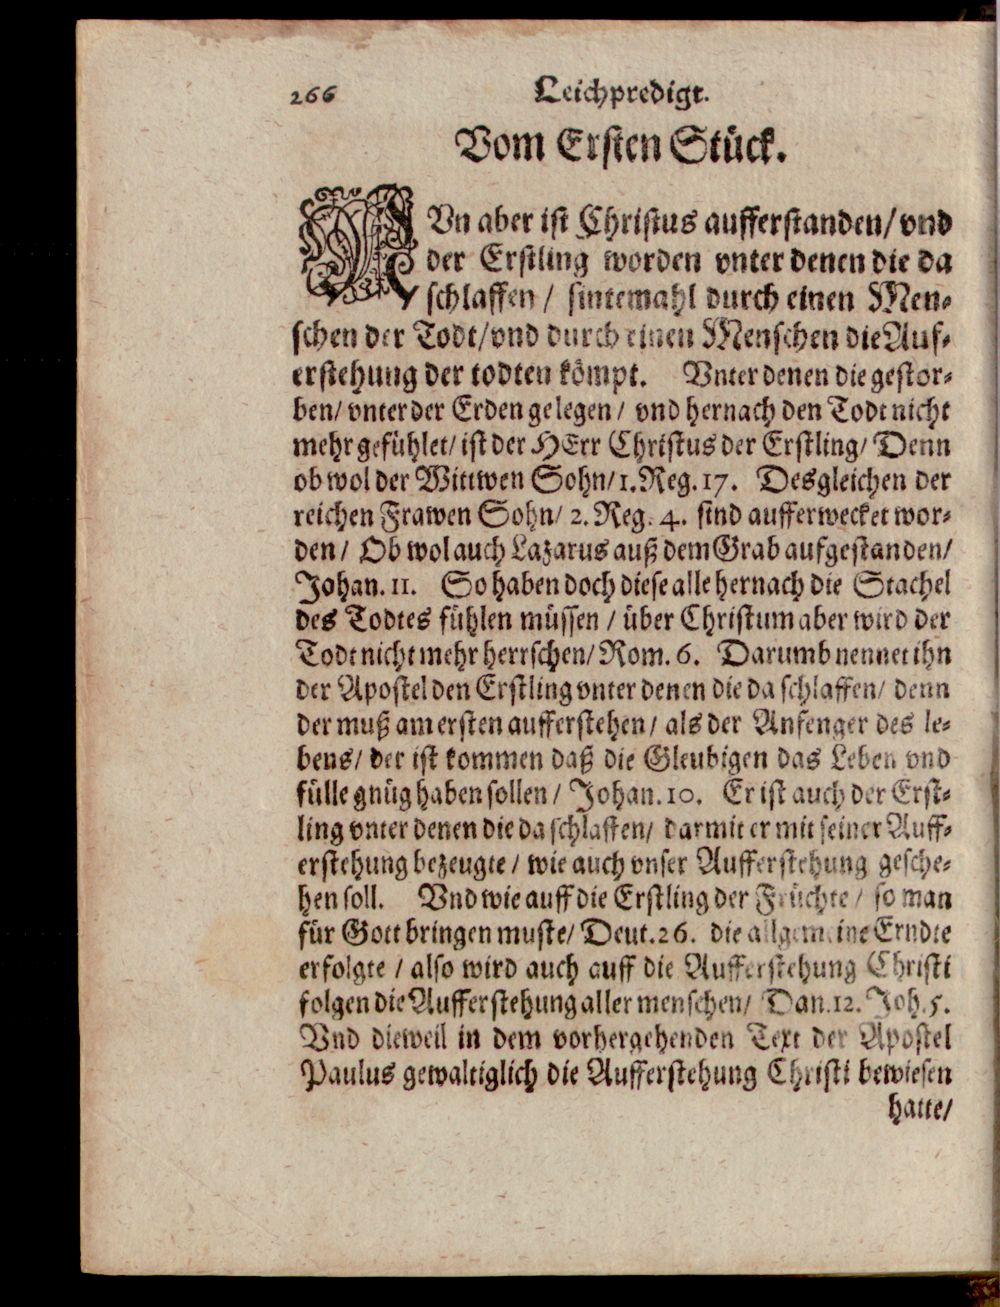 266 Leichpredigt.
Vom Ersten Stück.
NVn aber ist Christus aufferstanden/ vnd
der Erstling worden vnter denen die da
schlaffen / sintemahl durch einen Men-
schen der Todt/ vnd durch einen Menschen die Auf-
erstehung der todten kömpt. Vnter denen die gestor-
ben/ vnter der Erden gelegen / vnd hernach den Todt nicht
mehr gefühlet/ ist der HErr Christus der Erstling/ Denn
ob wol der Wittwen Sohn/ 1. Reg. 17. Desgleichen der
reichen Frawen Sohn/ 2. Reg. 4. sind aufferwecket wor-
den / Ob wol auch Lazarus auß dem Grab aufgestanden/
Johan. 11. So haben doch diese alle hernach die Stachel
des Todtes fühlen müssen / über Christum aber wird der
Todt nicht mehr herrschen/ Rom. 6. Darumb nennet ihn
der Apostel den Erstling vnter denen die da schlaffen/ denn
der muß am ersten aufferstehen / als der Anfenger des le-
bens/ der ist kommen daß die Gleubigen das Leben vnd
fülle gnüg haben sollen / Johan. 10. Er ist auch der Erst-
ling vnter denen die da schlaffen/ darmit er mit seiner Auff-
erstehung bezeugte / wie auch vnser Aufferstehung gesche-
hen soll. Vnd wie auff die Erstling der Früchte / so man
für Gott bringen muste/ Deut. 26. die allgemeine Erndte
erfolgte / also wird auch auff die Aufferstehung Christi
folgen die Aufferstehung aller menschen/ Dan. 12. Joh. 5.
Vnd dieweil in dem vorhergehenden Text der Apostel
Paulus gewaltiglich die Aufferstehung Christi bewiesen
hatte/